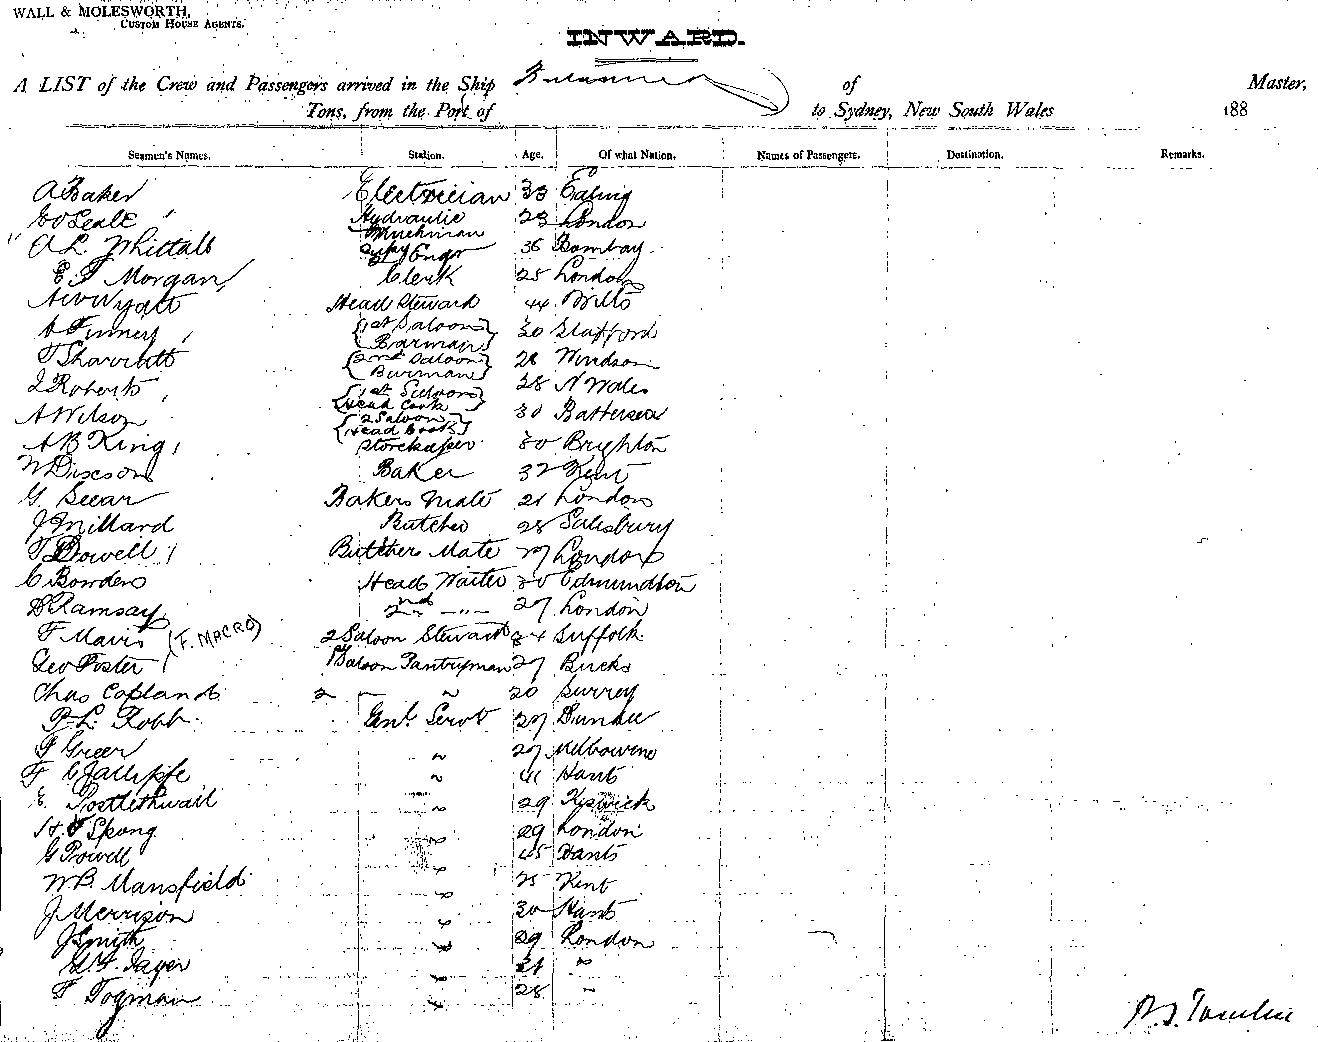 WALL & MOLESWORTH,
CUSTOM HOUSE AGENTS.
INWARD.
A LIST of the Crew and Passengers arrived in the Ship Britannia of Master,
Tons, from the Port of to Sydney, New South Wales 188
Seamen's Names. Station. Age. Of what Nation. Names of Passengers. Destination. Remarks.
A Baker Electrician 33 Ealing
Hydraulic 28 London
A. L. Whittall Engr 36 Bombay
E. T. Morgan Clerk 25 London
Wyatt Head Steward 44 Wilts
A Finney 1st Saloon Barman 30 Stafford
T Sharratt 2nd Saloon Barman 28 Windsor
J Roberts 1st Saloon Head Cook 38 N Wales
A Wilson 2 Saloon Head Cook 30 Battersea
A B King Storekeeper 30 Brighton
Baker 32 Kent
G. Secar Bakers Mate 21 London
J Millard Butcher 28 Salisbury
T Dowell Butchers Mate 27 London
C Bowden Head Waiter 30 Edmundton
D Ramsay 2nd -"- 27 London
F Mavis (F. MACRO) 2 Saloon Steward 34 Suffolk
Geo Foster 1 Saloon Pantryman 27 Bucks
Chas Copland 2 — " 20 Surrey
P. L. Robb Genl. Servt 27 Dundee
F Greer " 27 Melbourne
F C Jalliffe " 41 Hants
E. Postlethwait " 29 Keswick
H F Spong " 29 London
G Powell " 45 Hants
W. B. Mansfield " 25 Kent
J Merrison " 30 Hants
J Smith " 29 London
Sayer " 21 "
F Togman " 28 "